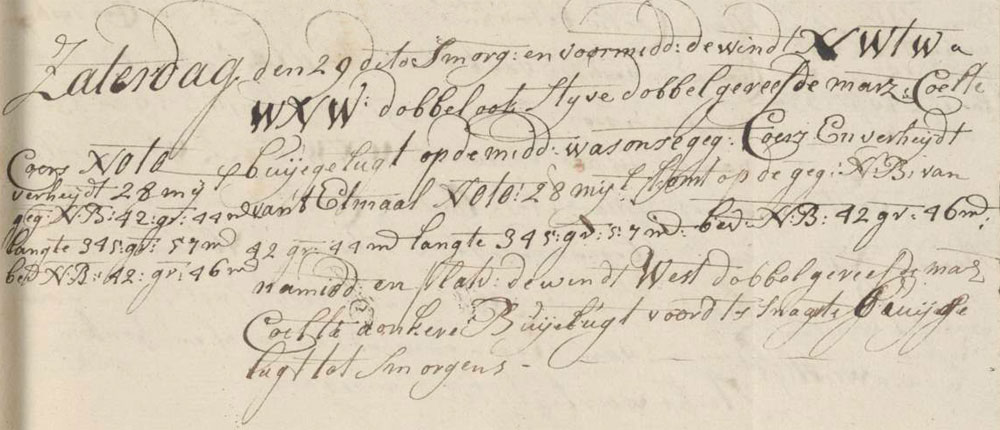 Zaterdag den 29 dito Smorg: en voormidd: de wind NWtW a
WNW: dobbel ook styve dobbel gereefde marz: Coelte
buijege lugt op de midd: was onse geg: Coers En verheydt
van 't Etmaal NOtO: 28 mijl komt op de geg: N:B: van
42 gr: 44 md langte 345: gr: 57 md: bed: N:B: 42 gr: 46 md:
namidd: en plat: de windt West dobbel gereefde marz
Coelte donkere Buije lugt voordts snagts buijige
lugt tot Smorgens -
Coers NOtO
verheydt 28 mijl
geg: N:B: 42: gr: 44 md
langte 345: gr: 57 md
bed N:B: 42: gr: 46 md